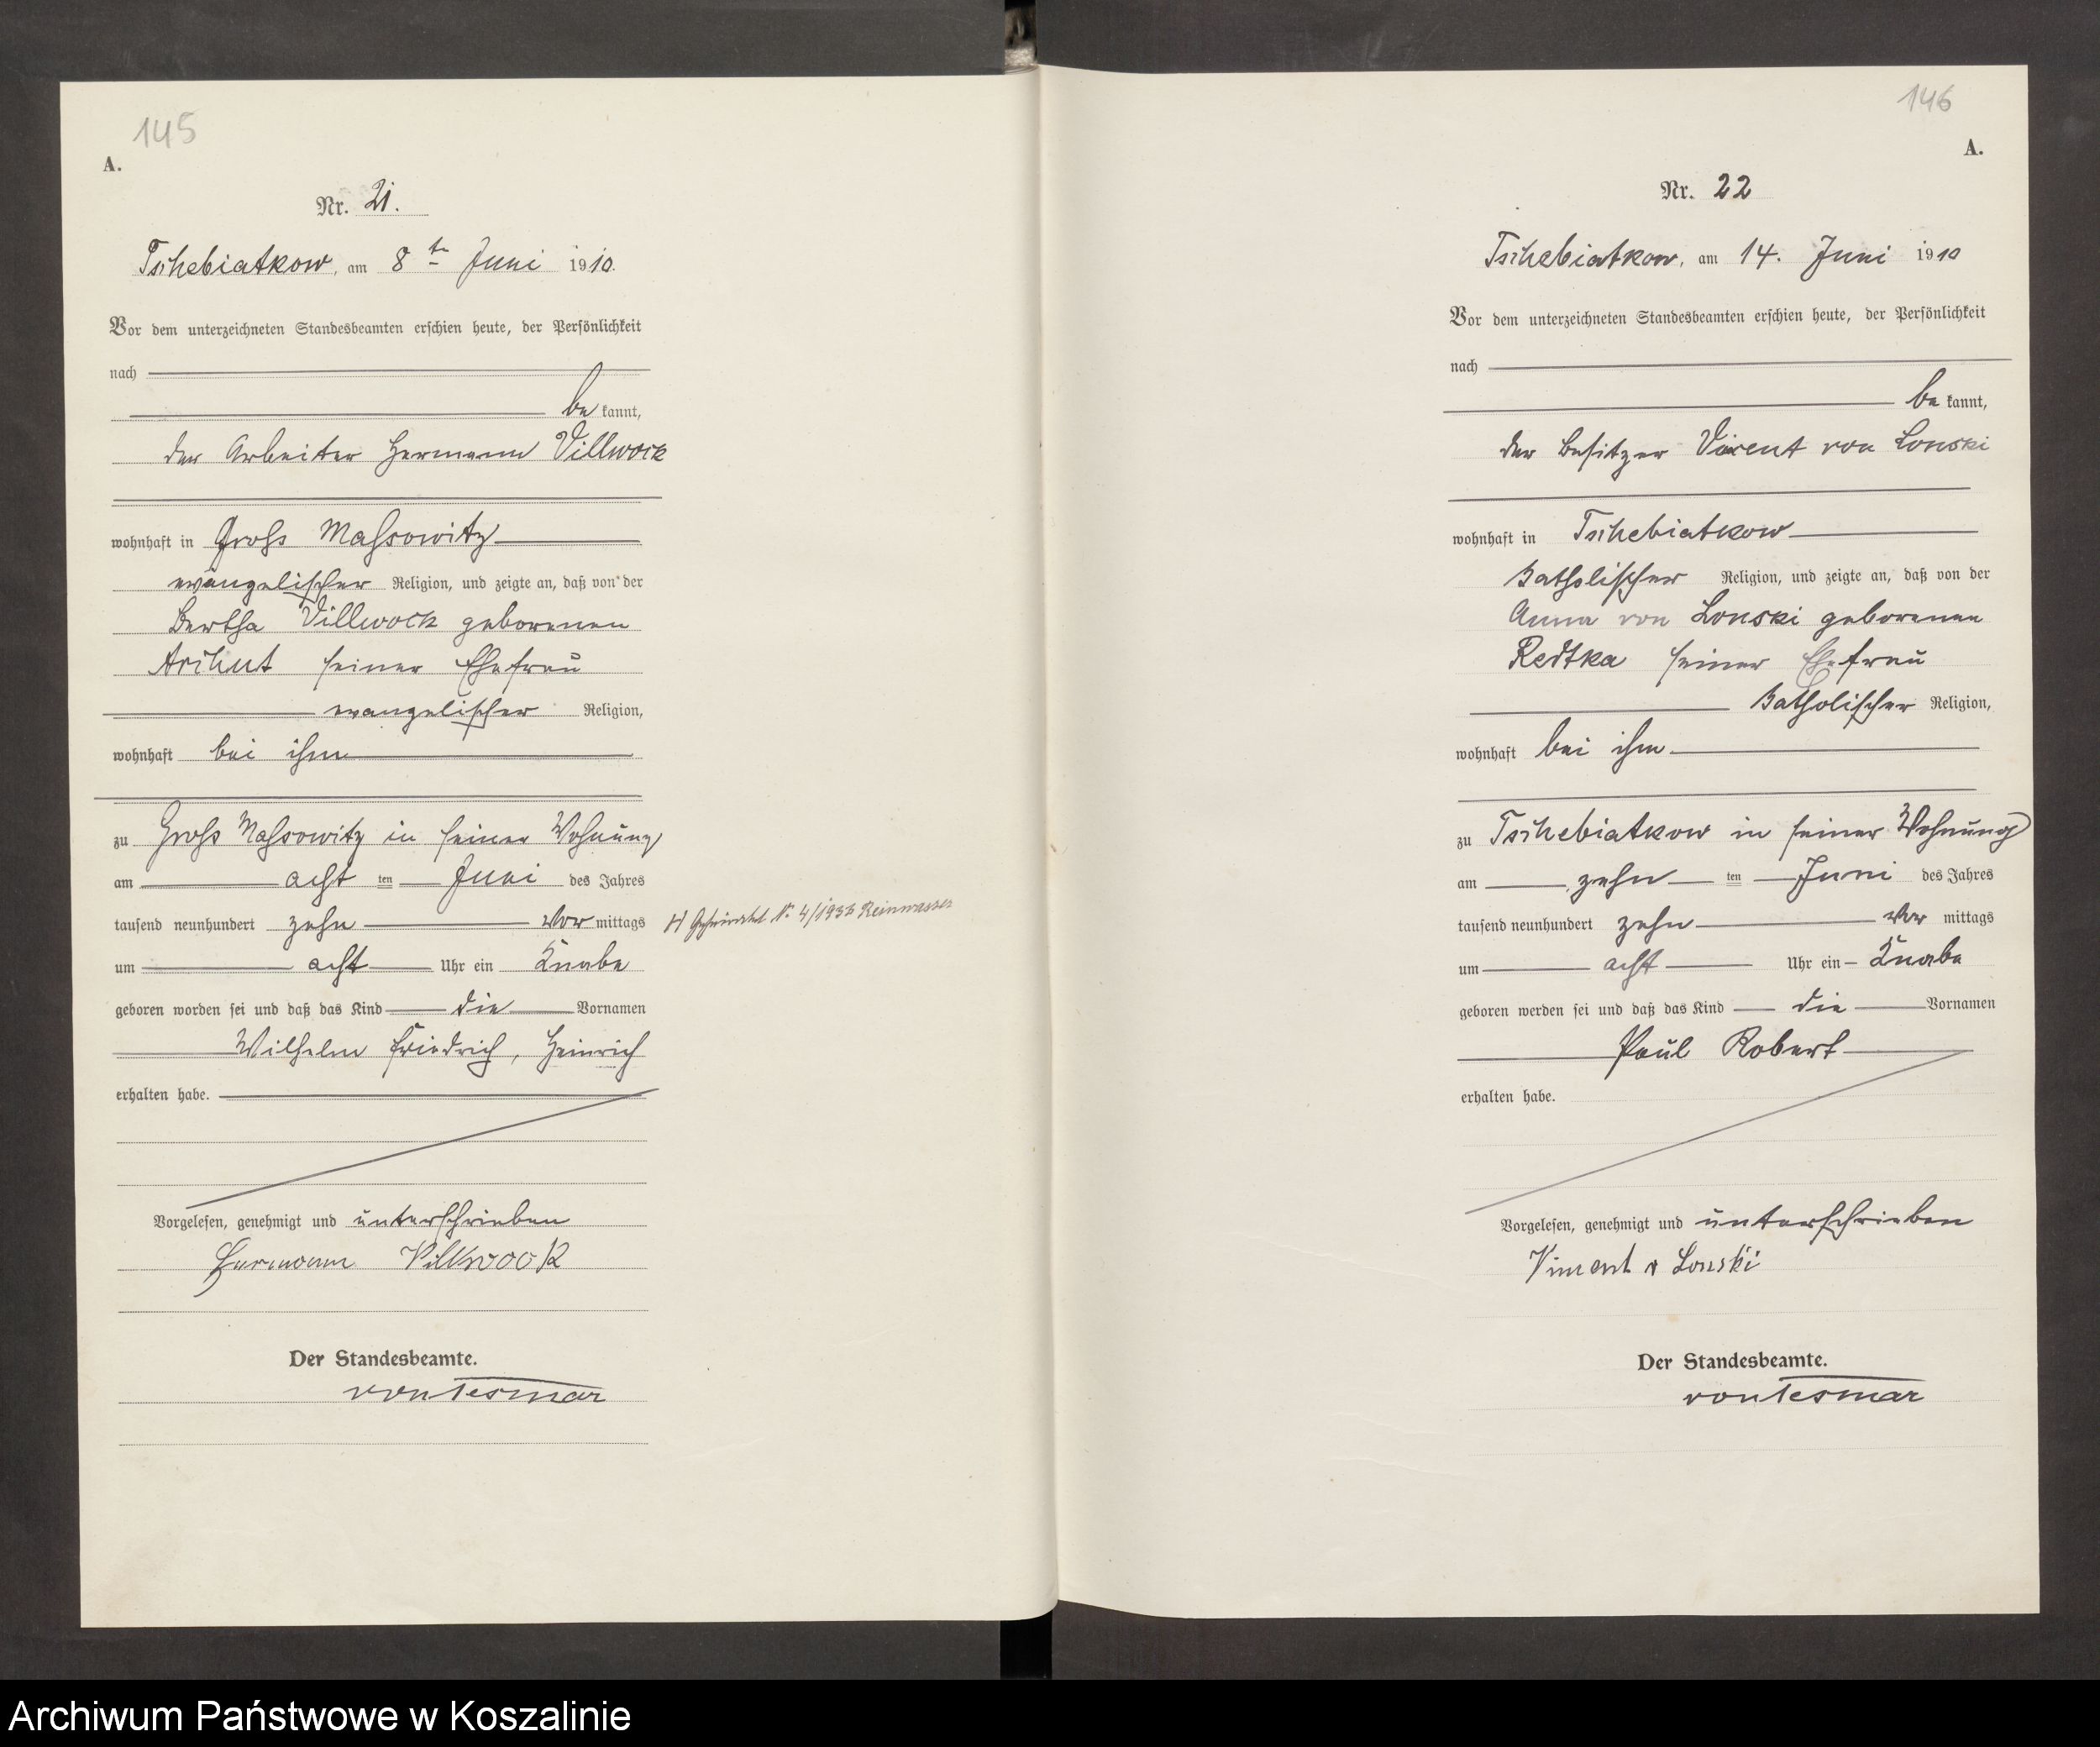 145
A.
Nr. 21.
Tschebiatkow, am 8te Juni 1910.
Vor dem unterzeichneten Standesbeamten erschien heute, der Persönlichkeit
nach
be kannt,
der Arbeiter Hermann Villwock
wohnhaft in Gross Massowitz
evangelischer Religion, und zeigte an, daß von der
Bertha Villwock geborenen
seiner Ehefrau
evangelischer Religion,
wohnhaft bei ihm
zu Gross Massowitz in seiner Wohnung
am acht ten Juni des Jahres
tausend neunhundert zehn Vor mittags
H Geheiratet Nr. 4/1936 Reinwasser
um acht Uhr ein Knabe
geboren worden sei und daß das Kind die Vornamen
Wilhelm Friedrich, Heinrich
erhalten habe.
Vorgelesen, genehmigt und unterschrieben
Hermann Villwock
Der Standesbeamte.
von Tesmar
146
A.
Nr. 22
Tschebiatkow, am 14. Juni 1910
Vor dem unterzeichneten Standesbeamten erschien heute, der Persönlichkeit
nach
be kannt,
der Besitzer Vincent von Lonski
wohnhaft in Tschebiatkow
katholischer Religion, und zeigte an, daß von der
Anna von Lonski geborenen
Redtka seiner Ehefrau
katholischer Religion,
wohnhaft bei ihm
zu Tschebiatkow in seiner Wohnung
am zehn ten Juni des Jahres
tausend neunhundert zehn Vor mittags
um acht Uhr ein Knabe
geboren werden sei und daß das Kind die Vornamen
Paul Robert
erhalten habe.
Vorgelesen, genehmigt und unterschrieben
Vincent v Lonski
Der Standesbeamte.
von Tesmar
Archiwum Państwowe w Koszalinie